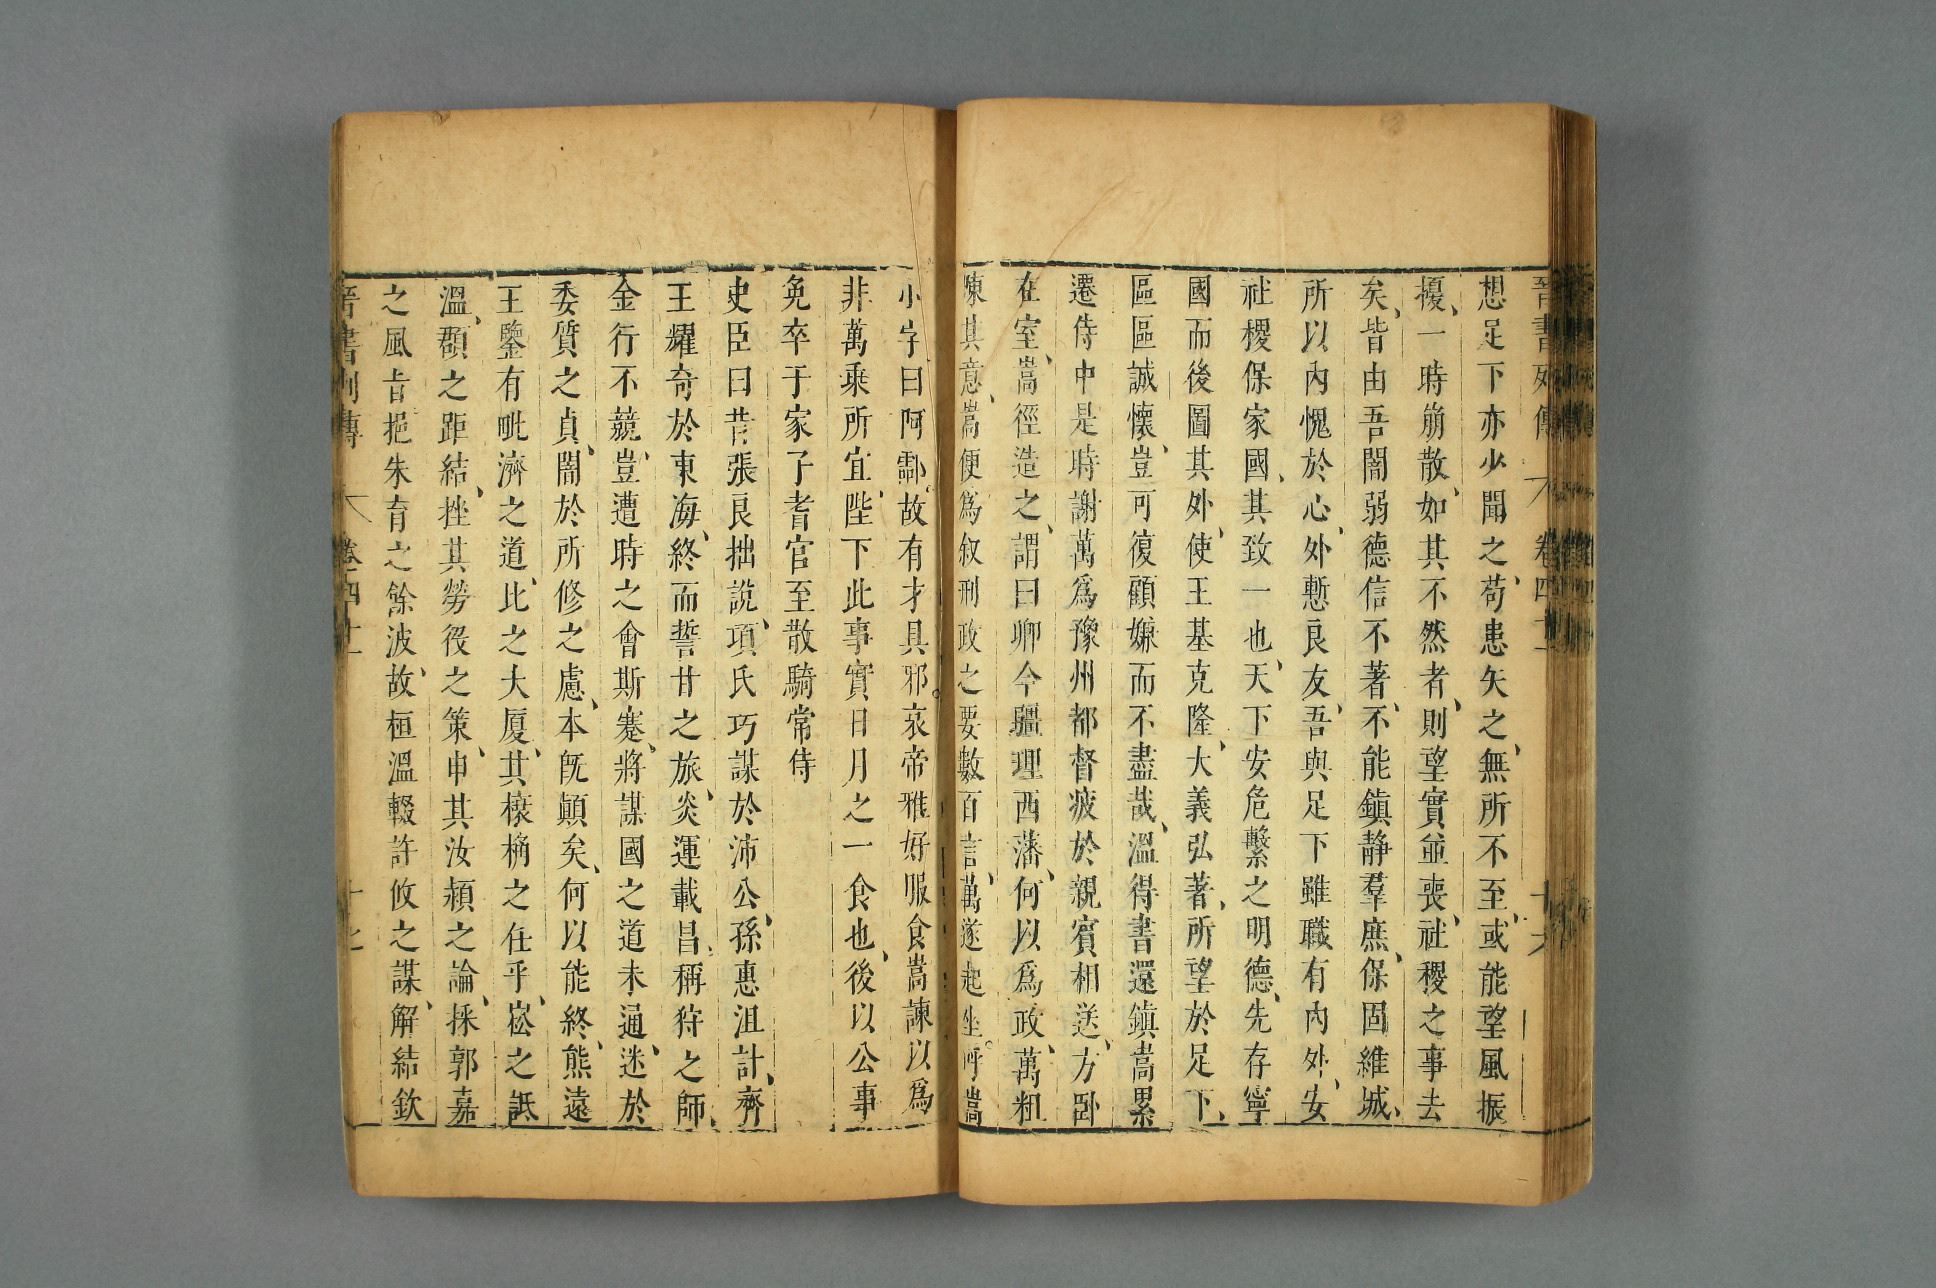 晉書列傳 卷四十一 十六
想足下亦少聞之、苟患矢之、無所不至、或能望風振
擾、一時崩散、如其不然者、則望實並喪、社稷之事去
矣、皆由吾闇弱德信不著、不能鎮静羣庶、保固維城、
所以內愧於心、外慙良友、吾與足下雖職有內外、安
社稷保家國、其致一也、天下安危繫之明德、先存寧
國而後圖其外、使王基克隆、大義弘著、所望於足下、
區區誠懷、豈可復顧嫌而不盡哉、溫得書還鎮嵩累
遷侍中是時謝萬爲豫州都督疲於親賓相送、方卧
在室、嵩徑造之、謂曰卿今疆理西藩、何以爲政、萬粗
陳其意、嵩便爲敘刑政之要數百言、萬遂起坐。呼嵩
小字、曰阿酃。故有才具邪。哀帝雅好服食嵩諫以爲
非萬乘所宜、陛下此事實日月之一食也、後以公事
免卒于家子耆官至散騎常侍
史臣曰昔張良拙說、項氏巧謀於沛公、孫惠沮計、齊
王耀奇於東海、終而誓甘之旅、炎運載昌、稱狩之師、
金行不競、豈遭時之會斯蹇、將謀國之道未通、迷於
委質之貞、闇於所修之慮、本旣顛矣、何以能終、熊遠
王鑒有毗濟之道、比之大厦、其榱桷之任乎、崧之詆
溫、顗之距結、挫其勞役之策、申其汝潁之論、採郭嘉
之風旨挹朱育之餘波、故桓溫輟許攸之謀、解結欽
晉書列傳 卷四十一 十七